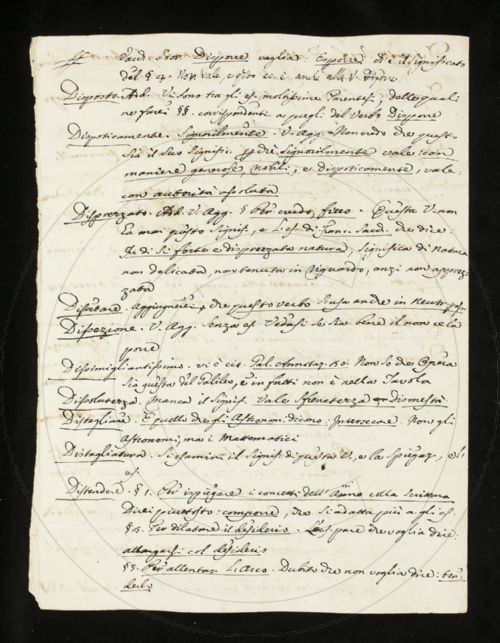 Sacc. Stor. Disporre voglia Esporre
del § 4. Non vale
Disposto. Ad. Vi sono tra gli es. moltissime Parentesi, delle quali
ne farei §§. corrispondente a quegli del Verbo Disporre
Dispoticamente. Signorilmente. V. Agg. Non credo che questo
sia il suo signific. perchè signorilmente vale: con
maniere generose, nobili, e dispoticamente, vale:
con autorità assoluta
Disprezzato. Ad. V. Agg. § Per crudo, fiero. Questa V. non
ha mai questo signif., e l'es. di Franc. Sacch. che dice:
di sì forte e disprezzata natura, significa di Natura
non delicata, non tenuta in riguardo, anzi non apprez-
zata
Aggiugnerei, che questo verbo s'usa anche in Neutr. pass.
V. Agg. Senza es. Vedasi se sia bene il non ce la
porre
Dissimigliantissimo. vi è cit. Gal. Non so che Opera
sia questa del Galileo, e in fatti non è nella Tavola
Dissolutezza. Manca il signif. Vale Sfrenatezza
Distagliare. È quello che gli Astronomi dicono: Intersecare. Non gli
Astronomi, ma i Matematici
Distagliatura. Si esamini il signif. di questa V., e la spiegaz., e l'
es.
Distendere. § 1. Per ispiegare i concetti dell'Animo colla scrittura
Direi piuttosto: comporre, che si adatta più a gli es.
§ Per dilatare il desiderio. L'es. pare che voglia dire:
allargarsi col desiderio
§§. Per allentar l'Arco. Dubito che non voglia dire: ten-
derlo